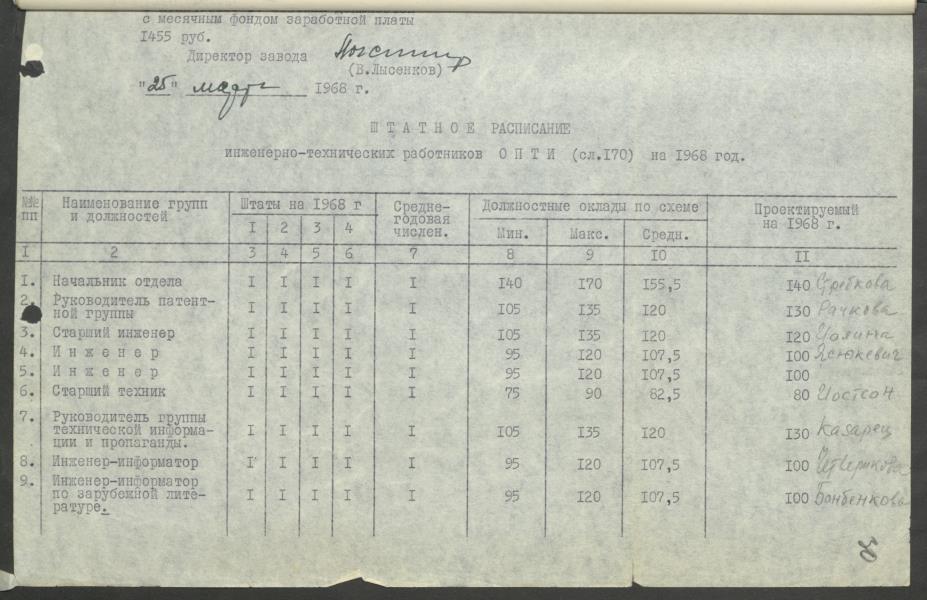 с месячным фондом заработной платы
1455 руб.
Директор завода
(В.Лысенков)
"25" марта 1968 г.
Ш Т А Т Н О Е РАСПИСАНИЕ
инженерно-технических работников О П Т И (сл.170) на 1968 год.
№№ пп Наименование групп и должностей Штаты на 1968 г Средне-годовая числен. Должностные оклады по схеме Проектируемый на 1968 г.
1 2 3 4 Мин. Макс. Средн.
I 2 3 4 5 6 7 8 9 10 11
1. Начальник отдела I I I I I 140 170 155,5 140
2. Руководитель патент-
ной группы I I I I I 105 135 120 130 Рачкова
3. Старший инженер I I I I I 105 135 120 120
4. И н ж е н е р I I I I I 95 120 107,5 100 Ясюкевич
5. И н ж е н е р I I I I I 95 120 107,5 100
6. Старший техник I I I I I 75 90 82,5 80
7. Руководитель группы
технической информа-
ции и пропаганды. I I I I I 105 135 120 130 Казарец
8. Инженер-информатор I I I I I 95 120 107,5 100
9. Инженер-информатор
по зарубежной лите-
ратуре. I I I I I 95 120 107,5 100
30